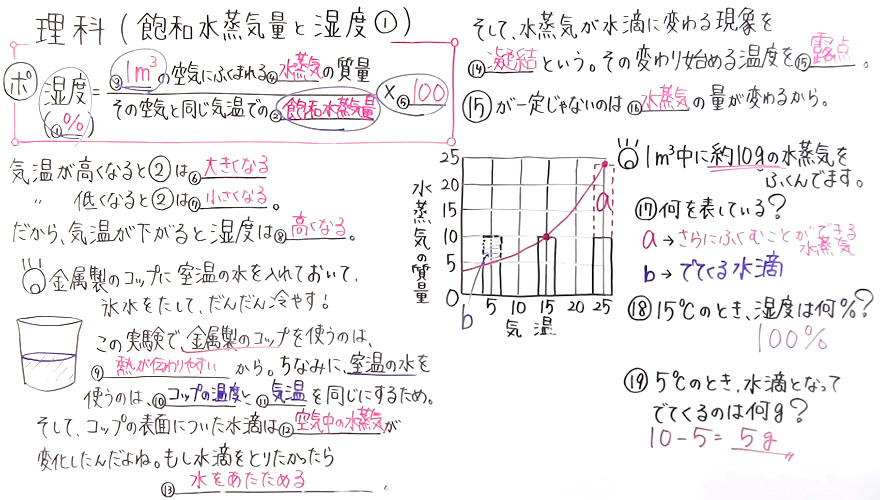 理科(飽和水蒸気量と湿度①)
ポ
湿度(①%) = ③1m³の空気にふくまれる④水蒸気の質量
その空気と同じ気温での②飽和水蒸気量
×⑤100
気温が高くなると②は⑥大きくなる
〃 低くなると②は⑦小さくなる。
だから、気温が下がると湿度は⑧高くなる。
金属製のコップに室温の水を入れておいて、
氷水をたして、だんだん冷やす!
この実験で、金属製のコップを使うのは、
⑨熱が伝わりやすいから。ちなみに、室温の水を
使うのは、⑩コップの温度と⑪気温を同じにするため。
そして、コップの表面についた水滴は⑫空気中の水蒸気が
変化したんだよね。もし水滴をとりたかったら
⑬水をあたためる。
そして、水蒸気が水滴に変わる現象を
⑭凝結という。その変わり始める温度を⑮露点。
⑮が一定じゃないのは⑯水蒸気の量が変わるから。
水蒸気の質量
25
20
15
10
5
0
5 10 15 20 25
気温
a
b
1m³中に約10gの水蒸気を
ふくんでます。
⑰何を表している?
a→さらにふくむことができる水蒸気
b→でてくる水滴
⑱15℃のとき、湿度は何%?
100%
⑲5℃のとき、水滴となって
でてくるのは何g?
10-5=5g